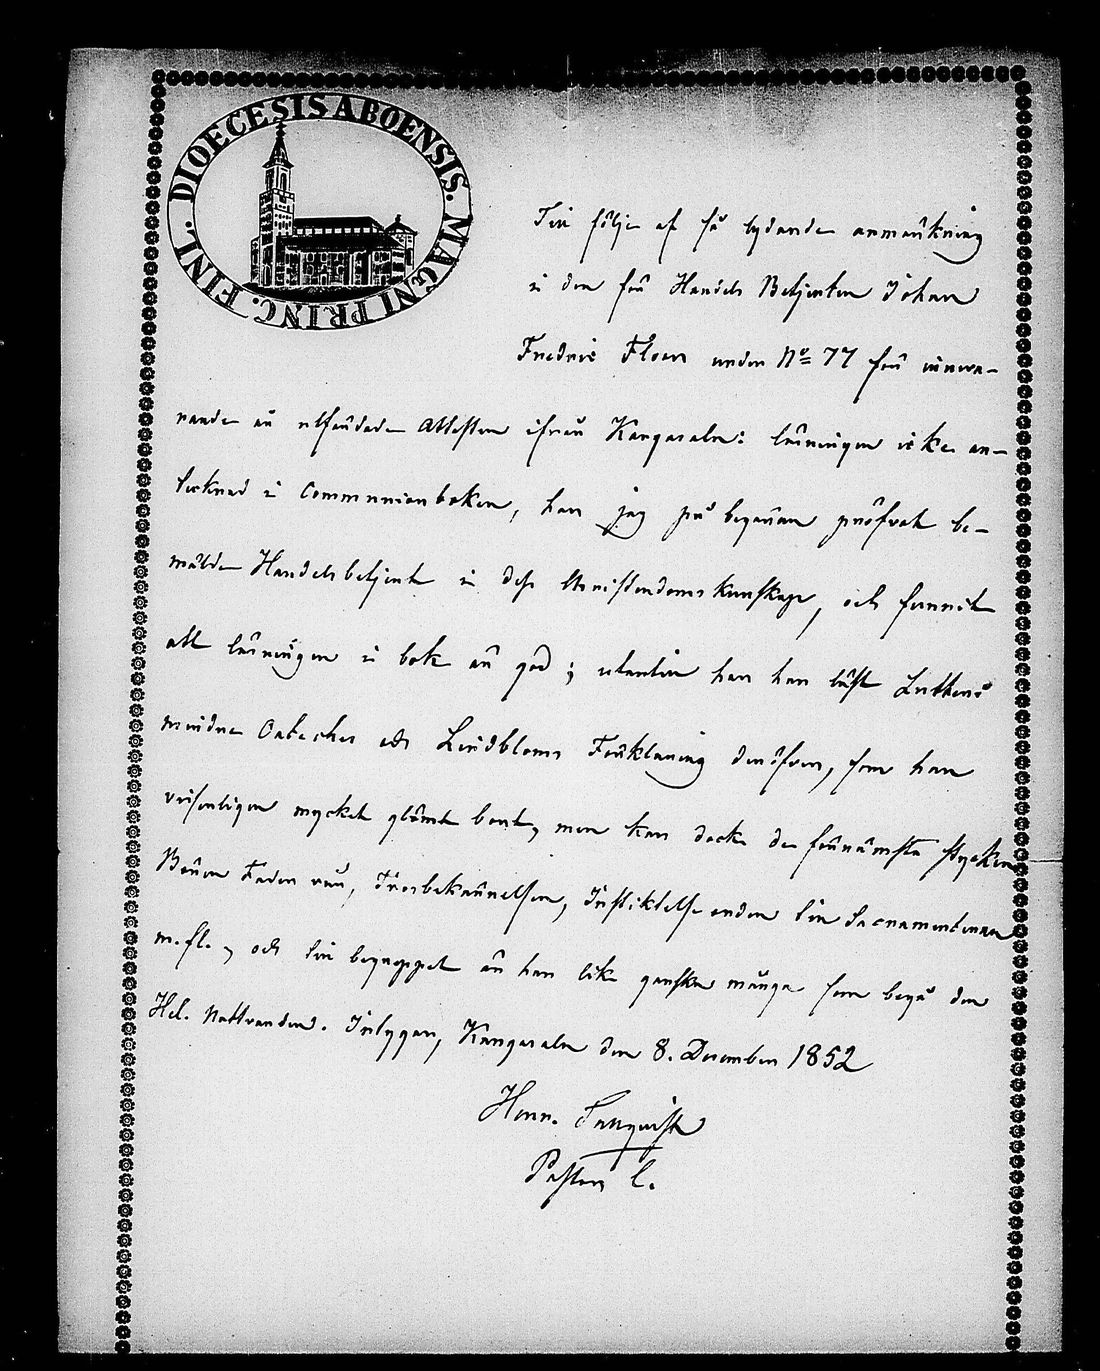 DIOECESIS ABOENSIS. MAGNI PRINC. FINL.
Till följe af så lydande anmärkning
i den för Handels Betjenten Johan
Fredric Floen under No 77 för innva-
rande år utfärdade Attesten ifrån Kangasala: läsningen icke an-
tecknad i Communionboken, har jag på begäran pröfvat be-
mälde Handelsbetjent i dess Christendomskunskap, och funnit
att läsningen i bok är god; utantill har han läst Luthers
mindre Cateches och Lindbloms Förklaring deröfver, som han
visserligen mycket glömt bort, men kan dock de förnämsta stycken
Bönen Fader vår, Trosbekännelsen, Instiktelse orden till Sacramenterna
m.fl., och till begreppet är han lik ganska många som begå den
Hel. Nattvarden. Intygar, Kangasala den 8. December 1852
Henr.
Pastor l.